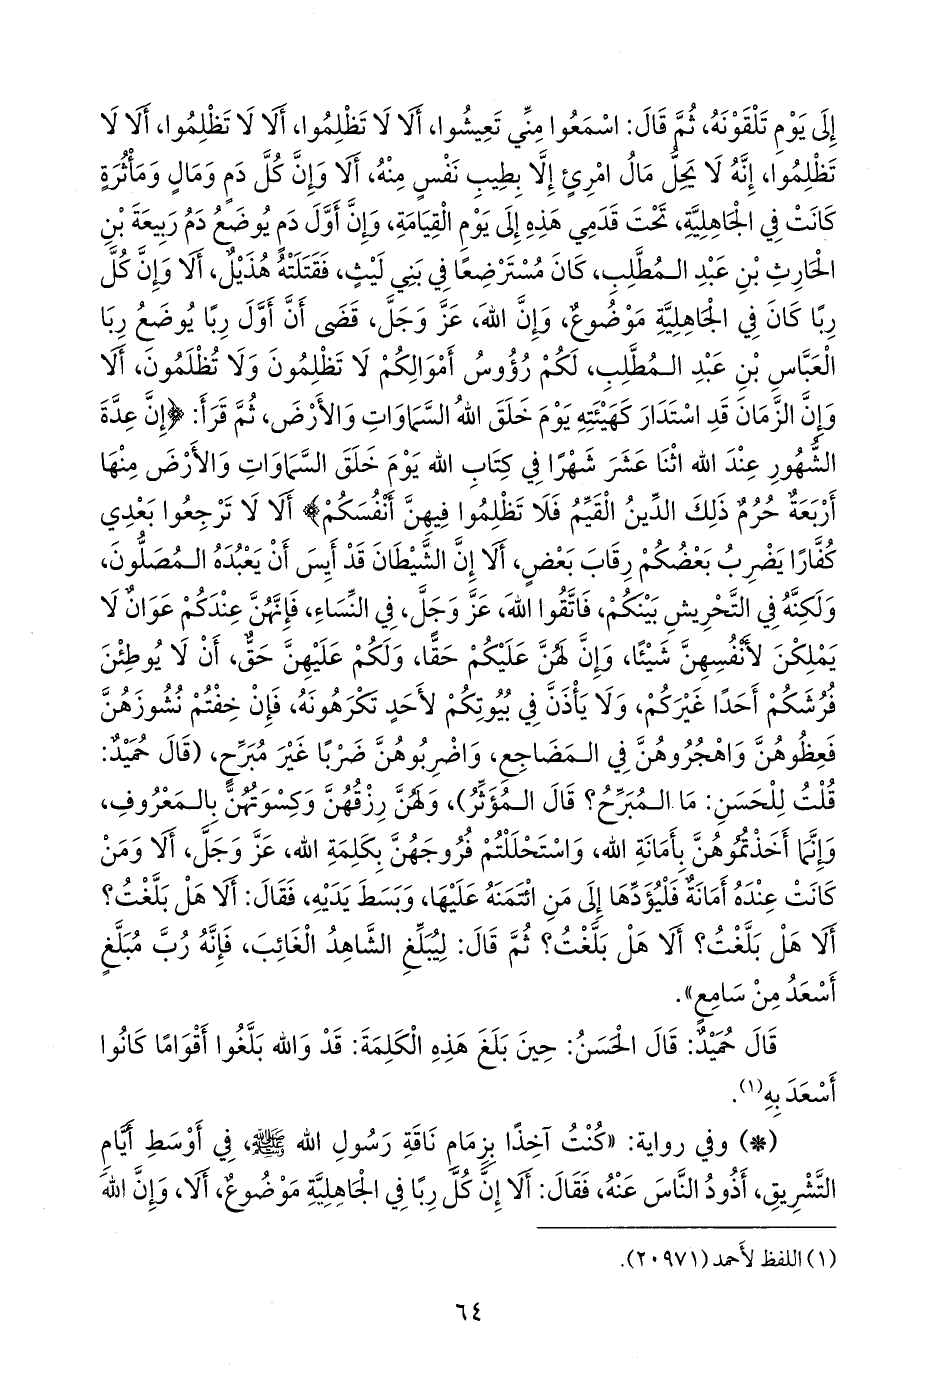 إِلَى يَوْمِ تَلْقَوْنَهُ، ثُمَّ قَالَ: اسْمَعُوا مِنِّي تَعِيشُوا، أَلَا لَا تَظْلِمُوا، أَلَا لَا تَظْلِمُوا، أَلَا لَا
تَظْلِمُوا، إِنَّهُ لَا يَحِلُّ مَالُ امْرِئٍ إِلَّا بِطِيبِ نَفْسٍ مِنْهُ، أَلَا وَإِنَّ كُلَّ دَمٍ وَمَالٍ وَمَأْثُرَةٍ
كَانَتْ فِي الْجَاهِلِيَّةِ، تَحْتَ قَدَمِي هَذِهِ إِلَى يَوْمِ الْقِيَامَةِ، وَإِنَّ أَوَّلَ دَمٍ يُوضَعُ دَمُ رَبِيعَةَ بْنِ
الْحَارِثِ بْنِ عَبْدِ الـمُطَّلِبِ، كَانَ مُسْتَرْضِعًا فِي بَنِي لَيْثٍ، فَقَتَلَتْهُ هُذَيْلٌ، أَلَا وَإِنَّ كُلَّ
رِبًا كَانَ فِي الْجَاهِلِيَّةِ مَوْضُوعٌ، وَإِنَّ اللهَ، عَزَّ وَجَلَّ، قَضَى أَنَّ أَوَّلَ رِبًا يُوضَعُ رِبَا
الْعَبَّاسِ بْنِ عَبْدِ الـمُطَّلِبِ، لَكُمْ رُؤُوسُ أَمْوَالِكُمْ لَا تَظْلِمُونَ وَلَا تُظْلَمُونَ، أَلَا
وَإِنَّ الزَّمَانَ قَدِ اسْتَدَارَ كَهَيْئَتِهِ يَوْمَ خَلَقَ اللهُ السَّمَاوَاتِ وَالأَرْضَ، ثُمَّ قَرَأَ: ﴿إِنَّ عِدَّةَ
الشُّهُورِ عِنْدَ اللهِ اثْنَا عَشَرَ شَهْرًا فِي كِتَابِ اللهِ يَوْمَ خَلَقَ السَّمَاوَاتِ وَالأَرْضَ مِنْهَا
أَرْبَعَةٌ حُرُمٌ ذَلِكَ الدِّينُ الْقَيِّمُ فَلَا تَظْلِمُوا فِيهِنَّ أَنْفُسَكُمْ﴾ أَلَا لَا تَرْجِعُوا بَعْدِي
كُفَّارًا يَضْرِبُ بَعْضُكُمْ رِقَابَ بَعْضٍ، أَلَا إِنَّ الشَّيْطَانَ قَدْ أَيِسَ أَنْ يَعْبُدَهُ الـمُصَلُّونَ،
وَلَكِنَّهُ فِي التَّحْرِيشِ بَيْنَكُمْ، فَاتَّقُوا اللهَ، عَزَّ وَجَلَّ، فِي النِّسَاءِ، فَإِنَّهُنَّ عِنْدَكُمْ عَوَانٌ لَا
يَمْلِكْنَ لأَنْفُسِهِنَّ شَيْئًا، وَإِنَّ لَهُنَّ عَلَيْكُمْ حَقًّا، وَلَكُمْ عَلَيْهِنَّ حَقٌّ، أَنْ لَا يُوطِئْنَ
فُرُشَكُمْ أَحَدًا غَيْرَكُمْ، وَلَا يَأْذَنَّ فِي بُيُوتِكُمْ لأَحَدٍ تَكْرَهُونَهُ، فَإِنْ خِفْتُمْ نُشُوزَهُنَّ
فَعِظُوهُنَّ وَاهْجُرُوهُنَّ فِي الـمَضَاجِعِ، وَاضْرِبُوهُنَّ ضَرْبًا غَيْرَ مُبَرِّحٍ، (قَالَ حُمَيْدٌ:
قُلْتُ لِلْحَسَنِ: مَا الـمُبَرِّحُ؟ قَالَ الـمُؤَثِّرُ)، وَلَهُنَّ رِزْقُهُنَّ وَكِسْوَتُهُنَّ بِالـمَعْرُوفِ،
وَإِنَّمَا أَخَذْتُمُوهُنَّ بِأَمَانَةِ اللهِ، وَاسْتَحْلَلْتُمْ فُرُوجَهُنَّ بِكَلِمَةِ اللهِ، عَزَّ وَجَلَّ، أَلَا وَمَنْ
كَانَتْ عِنْدَهُ أَمَانَةٌ فَلْيُؤَدِّهَا إِلَى مَنِ ائْتَمَنَهُ عَلَيْهَا، وَبَسَطَ يَدَيْهِ، فَقَالَ: أَلَا هَلْ بَلَّغْتُ؟
أَلَا هَلْ بَلَّغْتُ؟ أَلَا هَلْ بَلَّغْتُ؟ ثُمَّ قَالَ: لِيُبَلِّغِ الشَّاهِدُ الْغَائِبَ، فَإِنَّهُ رُبَّ مُبَلَّغٍ
أَسْعَدُ مِنْ سَامِعٍ».
قَالَ حُمَيْدٌ: قَالَ الْحَسَنُ: حِينَ بَلَغَ هَذِهِ الْكَلِمَةَ: قَدْ وَاللهِ بَلَّغُوا أَقْوَامًا كَانُوا
أَسْعَدَ بِهِ(١).
(*) وفي رواية: «كُنْتُ آخِذًا بِزِمَامِ نَاقَةِ رَسُولِ اللهِ ﷺ، فِي أَوْسَطِ أَيَّامِ
التَّشْرِيقِ، أَذُودُ النَّاسَ عَنْهُ، فَقَالَ: أَلَا إِنَّ كُلَّ رِبًا فِي الْجَاهِلِيَّةِ مَوْضُوعٌ، أَلَا، وَإِنَّ اللهَ
(١) اللفظ لأحمد (٢٠٩٧١).
٦٤